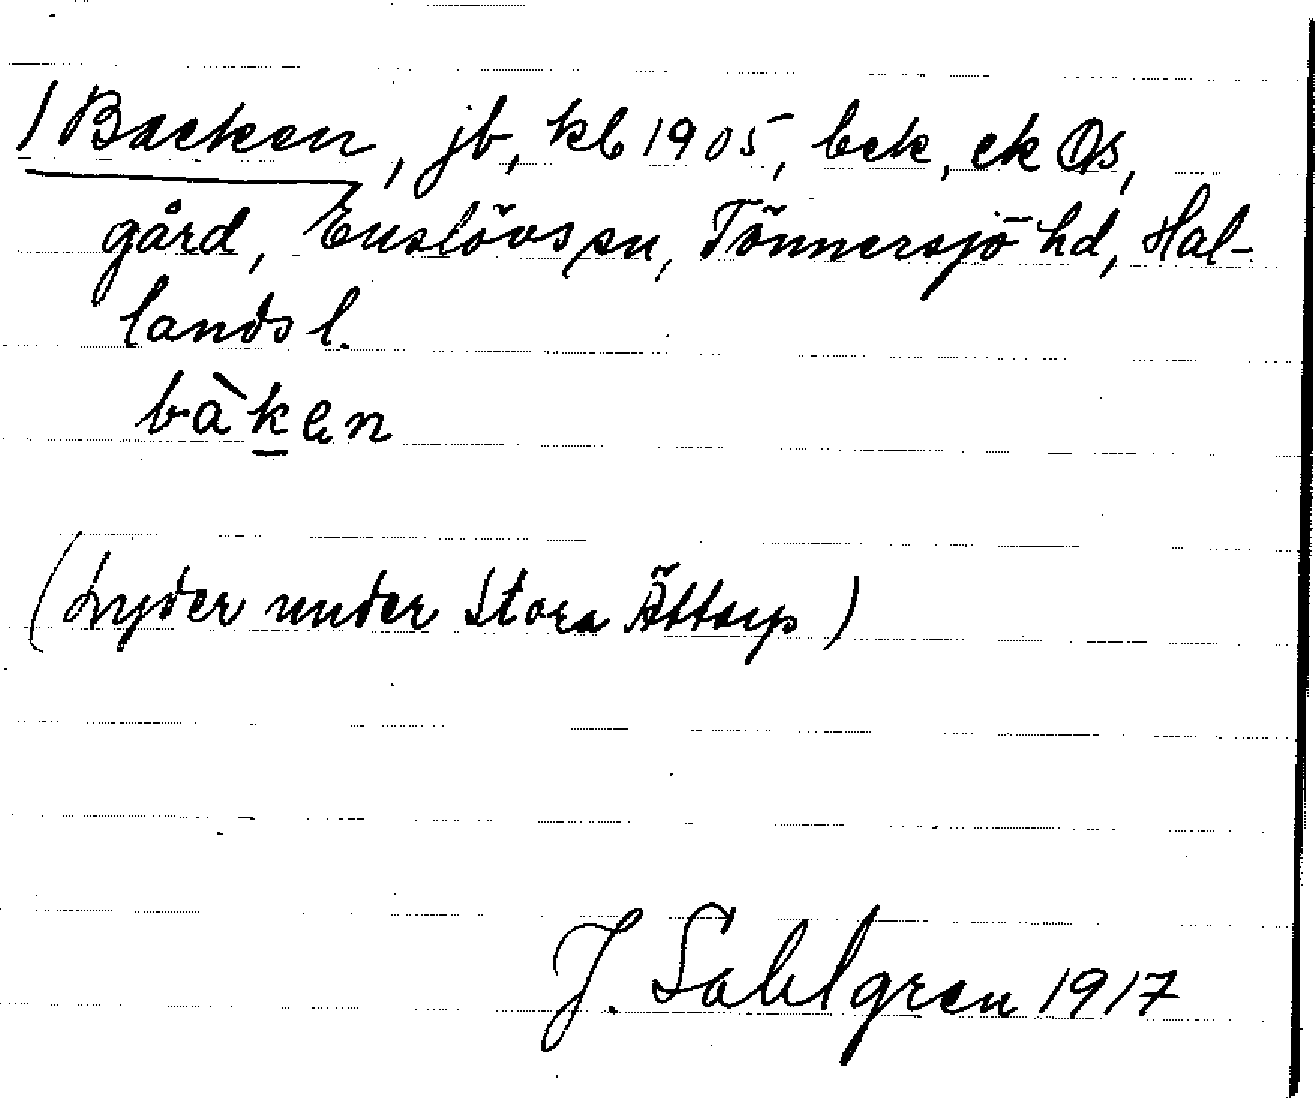 / Backen, jb, kb 1905, bek, ek Os,
gård, Enslövs sn, Tönnersjö hd, Hal-
lands l.
bàken
(Lyder under Stora Ättarp)
J. Sahlgren 1917